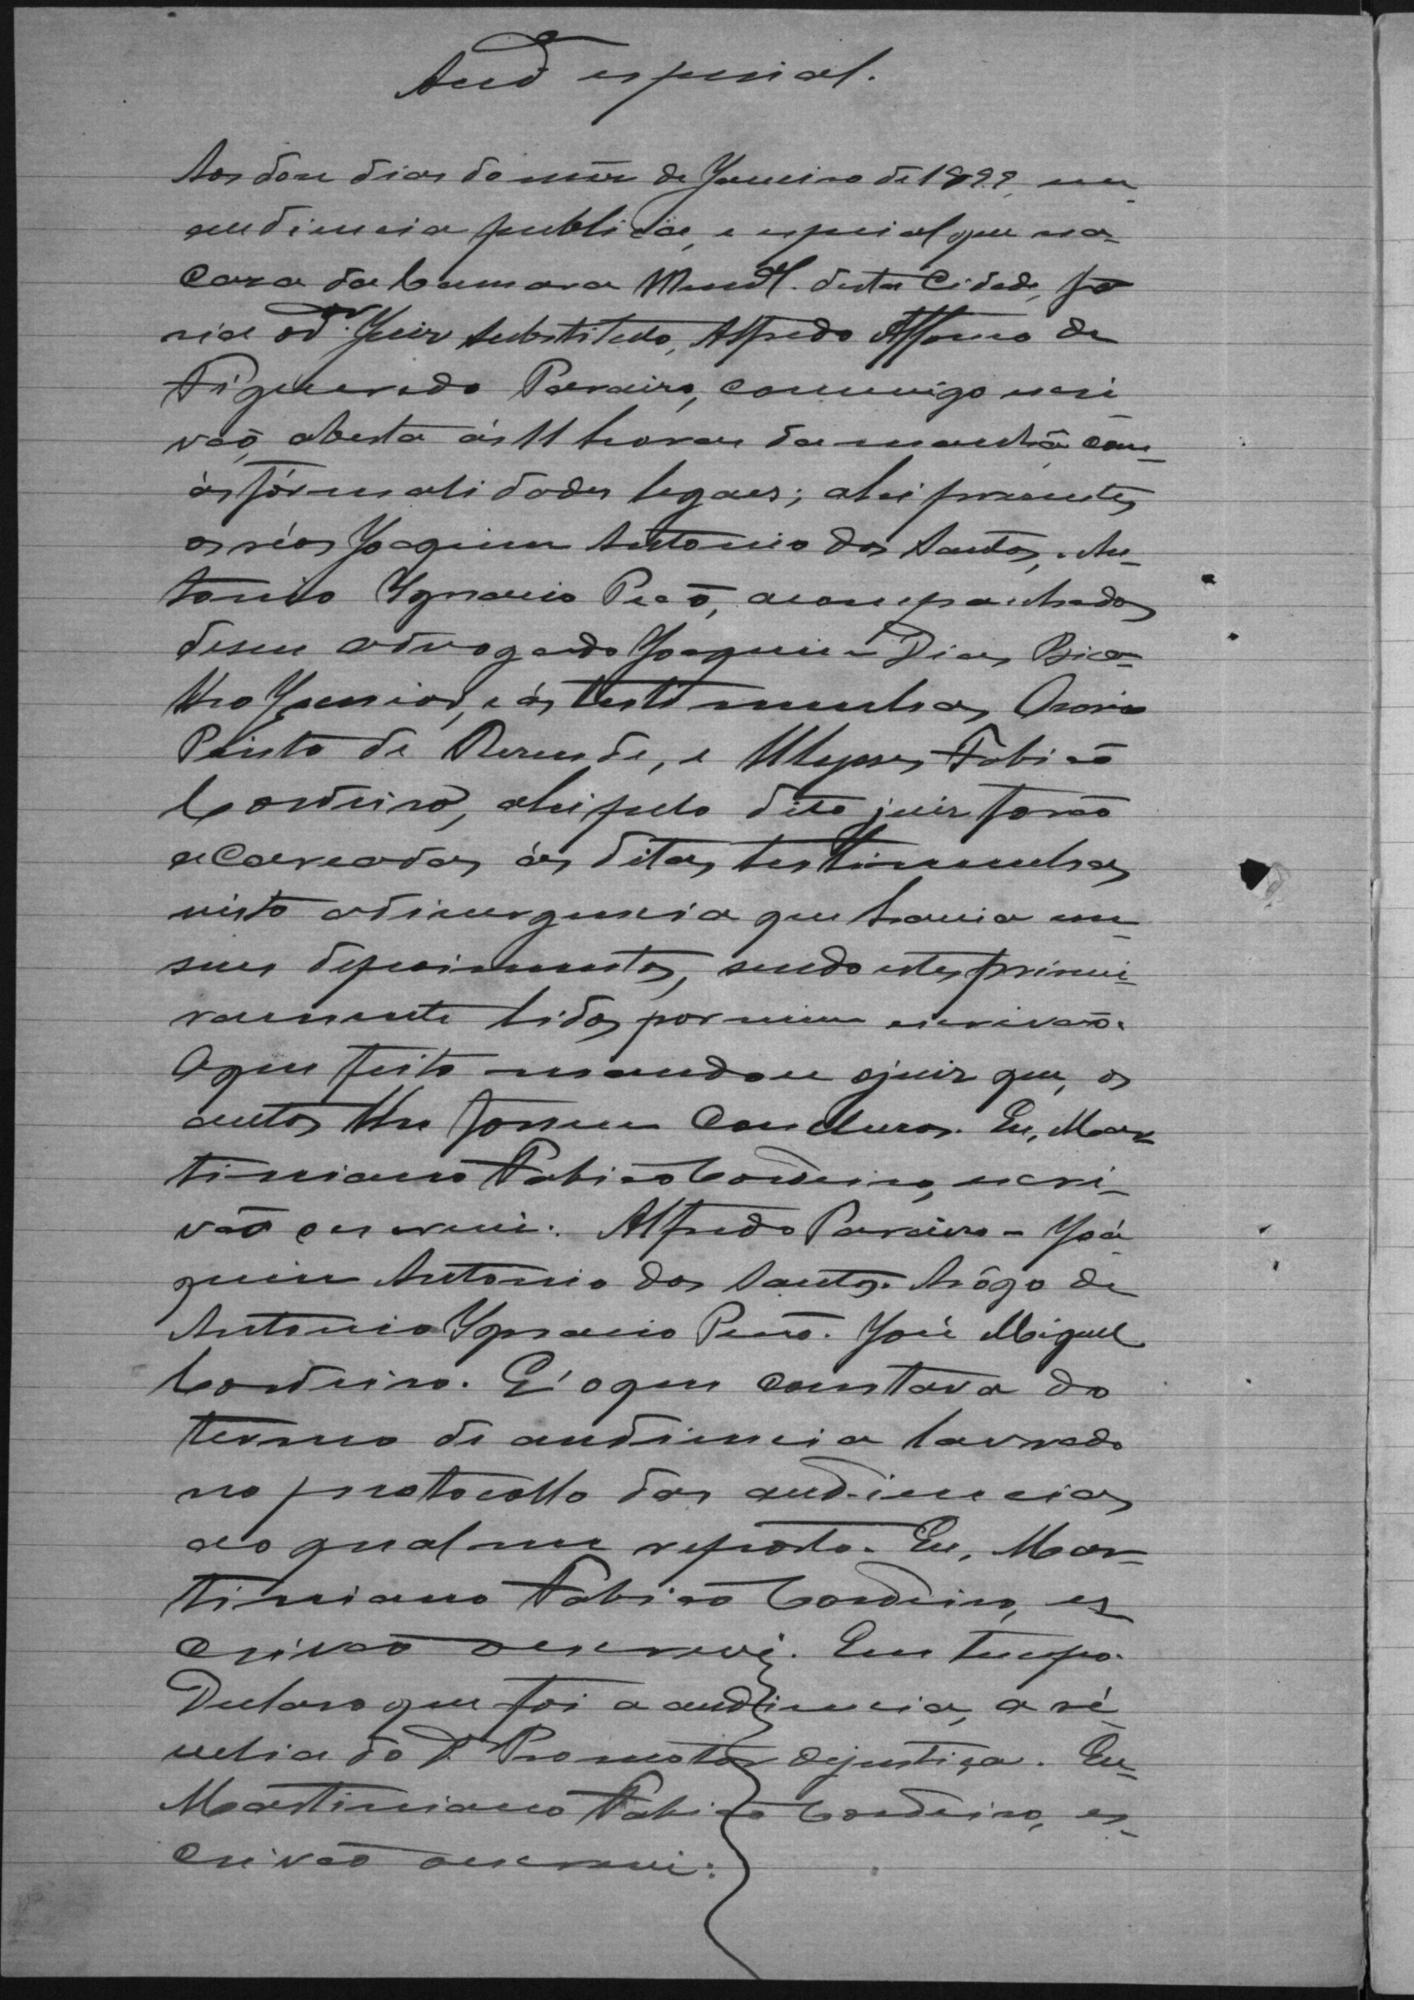 Aud especial.
Aos doze dias do mez de Janeiro de 1899, em
audiencia publica, e especial que na
Caza da Camara Munal. desta Cidade, fa
zia o Dr. Juiz Substituto, Alfredo Affonso de
Figueredo Paraizo, commigo escri
vaõ, aberta ás 11 horas da manhã com
ás fórmalidades legaes; ahi presentes
os réos Joaquim Antonio dos Santos, An
tonio Ygnacio Peaõ, acompanhados
deseu advogado Joaquim Dias Bica
lho Junior, e ás testimunhas Ozorio
Pinto de Rezende, e Ulysses Fabiaõ
Cordeiro, ahi pelo dito juiz foraõ
acareadas ás ditas testimunhas
visto a divergencia que havia em
seus depoimentos, sendo estes primei
ramente lidos por mim escrivaõ.
Oque feito mandou ojuiz que, os
autos lhe fossem Concluzos. Eu, Mar
timiano Fabiaõ Cordeiro, escri
vaõ oescrevi. Alfredo Paraizo - Joa
quim Antonio dos Santos. Arôgo de
Antonio Ygnacio Peaõ. José Miguel
Cordeiro. E' oque constava do
termo de audiencia lavrado
no protocollo das audiencias
ao qual me reporto. Eu, Mar
timiano Fabiaõ Cordeiro, es
crivaõ oescrevi. Em tempo.
Declaro que foi a audiencia, a ré
velia do Dr. Promotor dejustiça. Eu
Martimiano Fabiaõ Cordeiro, es
crivaõ oescrevi.